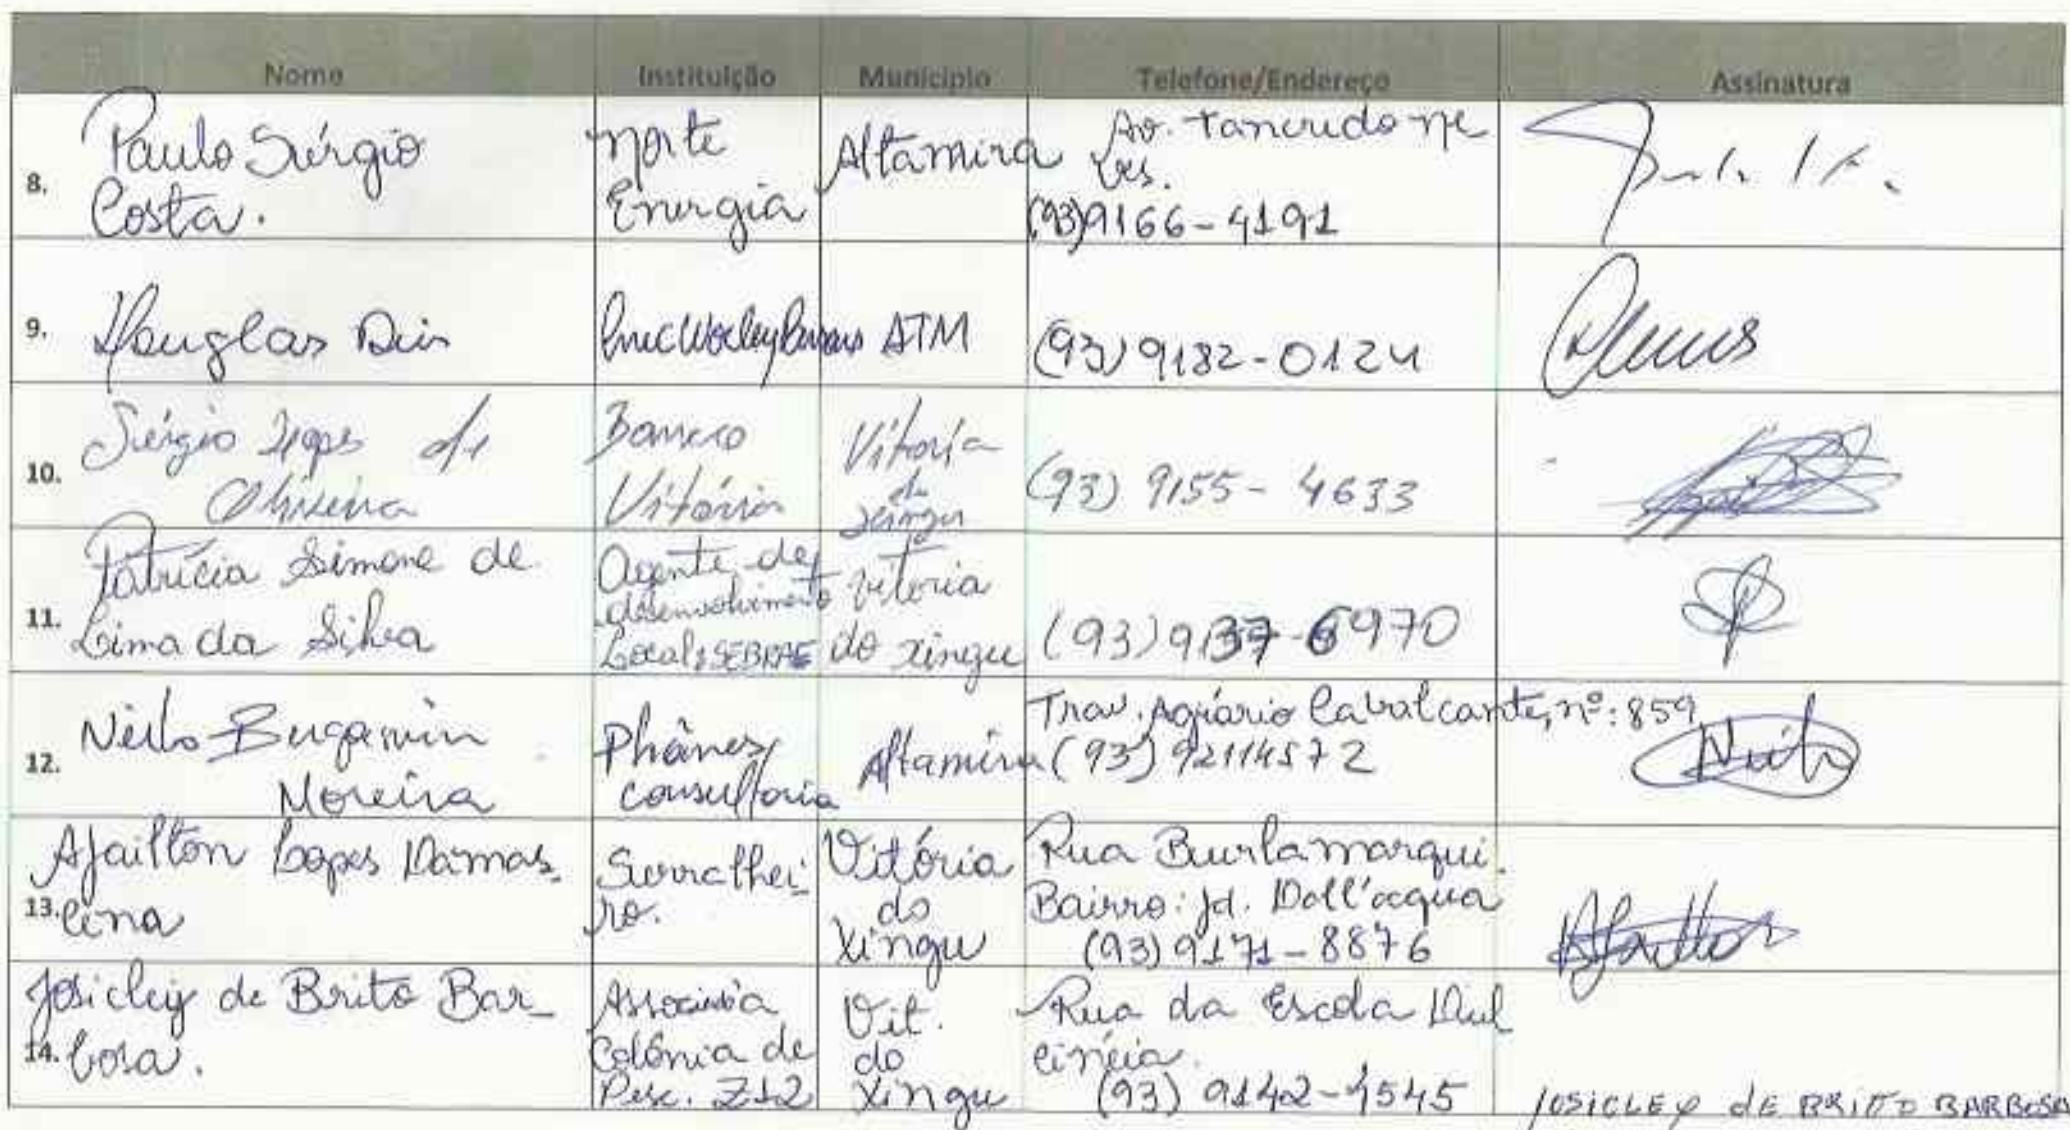 Nome Instituição Município Telefone/Endereço Assinatura
8. Paulo Sérgio Costa. Norte Energia Altamira Av. Tancredo Ne ves. (93)9166-4191
9. Douglas (93) 9182-0124
ATM
10. Sérgio Lopes de Oliveira Vitória Vitoria do xingu (93) 9155-4633
11. Patrícia Simone de Lima da Silva Agente de desenvolvimento Local, SEBRAE vitoria do xingu (93) 9137-6970
12. Moreira Phânes consultoria Altamira Trav. Agrário Cavalcante, nº: 859 (93) 92114572
13. Ajailton Lopes Damas cena Serralhei ro. Vitória do Xingu Rua Burlamarqui. Bairro: Jd. Dall'acqua (93) 9171-8876
14. Josicley de Brito Bar bosa. Colônia de Pesc. Z12 Vit. do Xingu Rua da Escola Dul cinéia. (93) 9142-4545 JOSICLEY dE BRITO BARBOSA